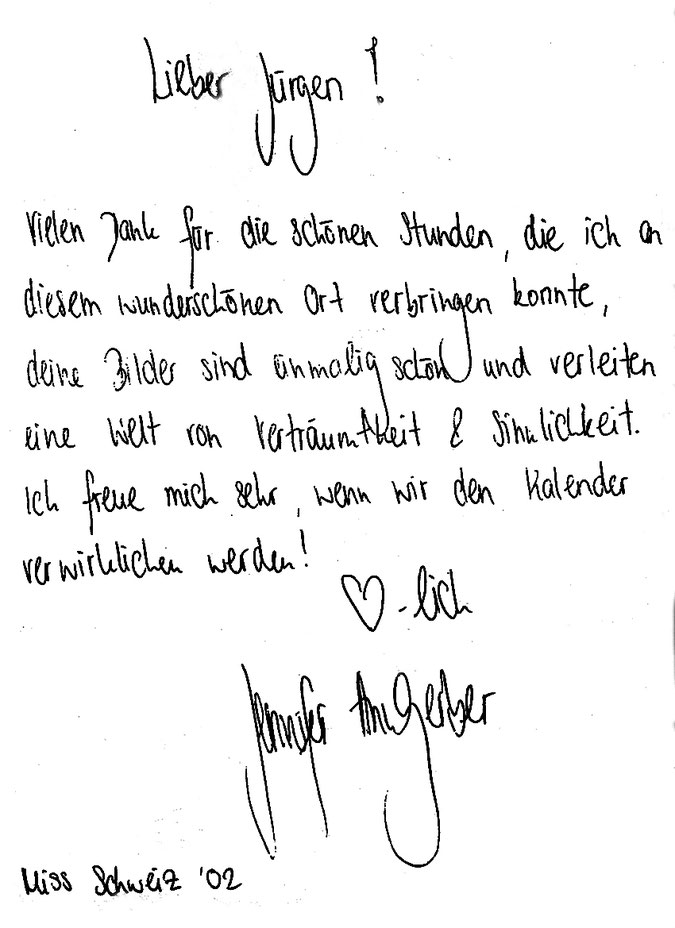 Lieber Jürgen!
Vielen Dank für die schönen Stunden, die ich an
diesem wunderschönen Ort verbringen konnte,
deine Bilder sind einmalig schön und verleiten
eine Welt von Verträumtkeit & Sinnlichkeit.
Ich freue mich sehr, wenn wir den Kalender
verwirklichen werden!
♡-lich
Jennifer Ann Gerber
Miss Schweiz '02